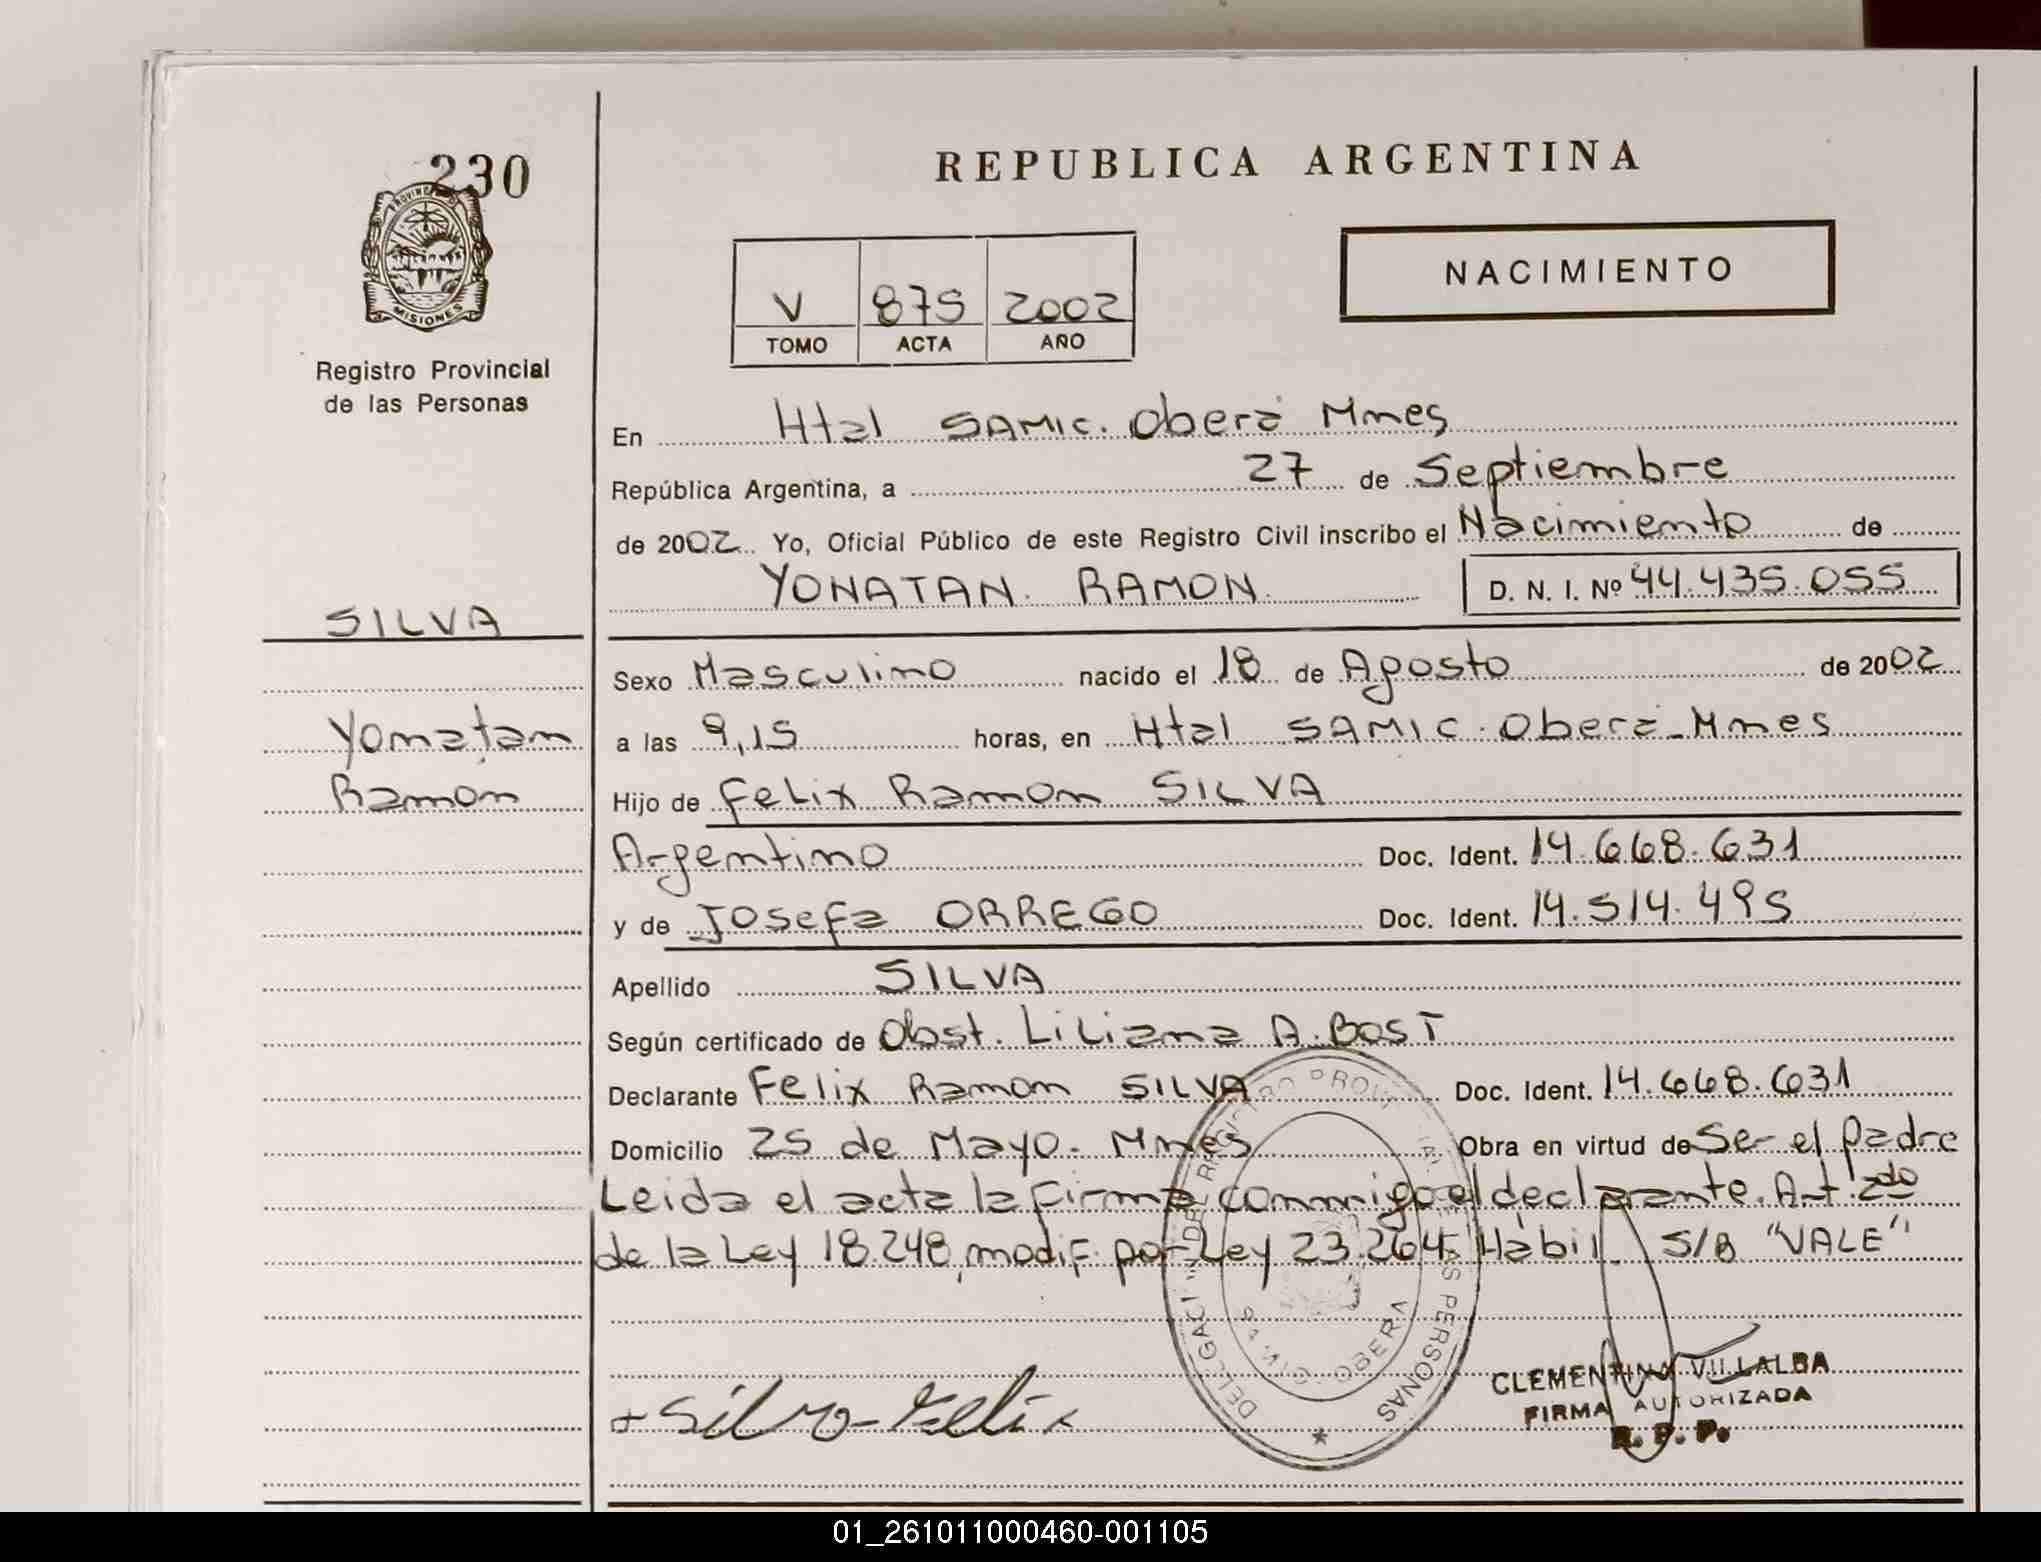 230
PROVINCIA DE
MISIONES
Registro Provincial
de las Personas
SILVA
Yonatan
Ramon
REPUBLICA ARGENTINA
V 875 2002
TOMO ACTA AÑO
NACIMIENTO
En Htal SAMIC. Oberá Mnes
República Argentina, a 27 de Septiembre
de 2002 Yo, Oficial Público de este Registro Civil inscribo el Nacimiento de
YONATAN. RAMON. D. N. I. Nº 44.435.055
Sexo Masculino nacido el 18 de Agosto de 2002
a las 9,15 horas, en Htal SAMIC. Oberá_Mnes
Hijo de Felix Ramon SILVA
Argentino Doc. Ident. 14.668.631
y de Josefa ORREGO Doc. Ident. 14.514.495
Apellido SILVA
Según certificado de Obst. Liliana A. BOST
Declarante Felix Ramon SILVA Doc. Ident. 14.668.631
Domicilio 25 de Mayo. Mnes Obra en virtud de Ser el Padre
Leida el acta la firma conmigo el declarante. Art. 2do
de la Ley 18.248, modif. por Ley 23.264 Habil S/B "VALE"
+ Silva Felix
CLEMENTINA VILLALBA
FIRMA AUTORIZADA
R. P. P.
OBERA
PERSONAS
01_261011000460-001105